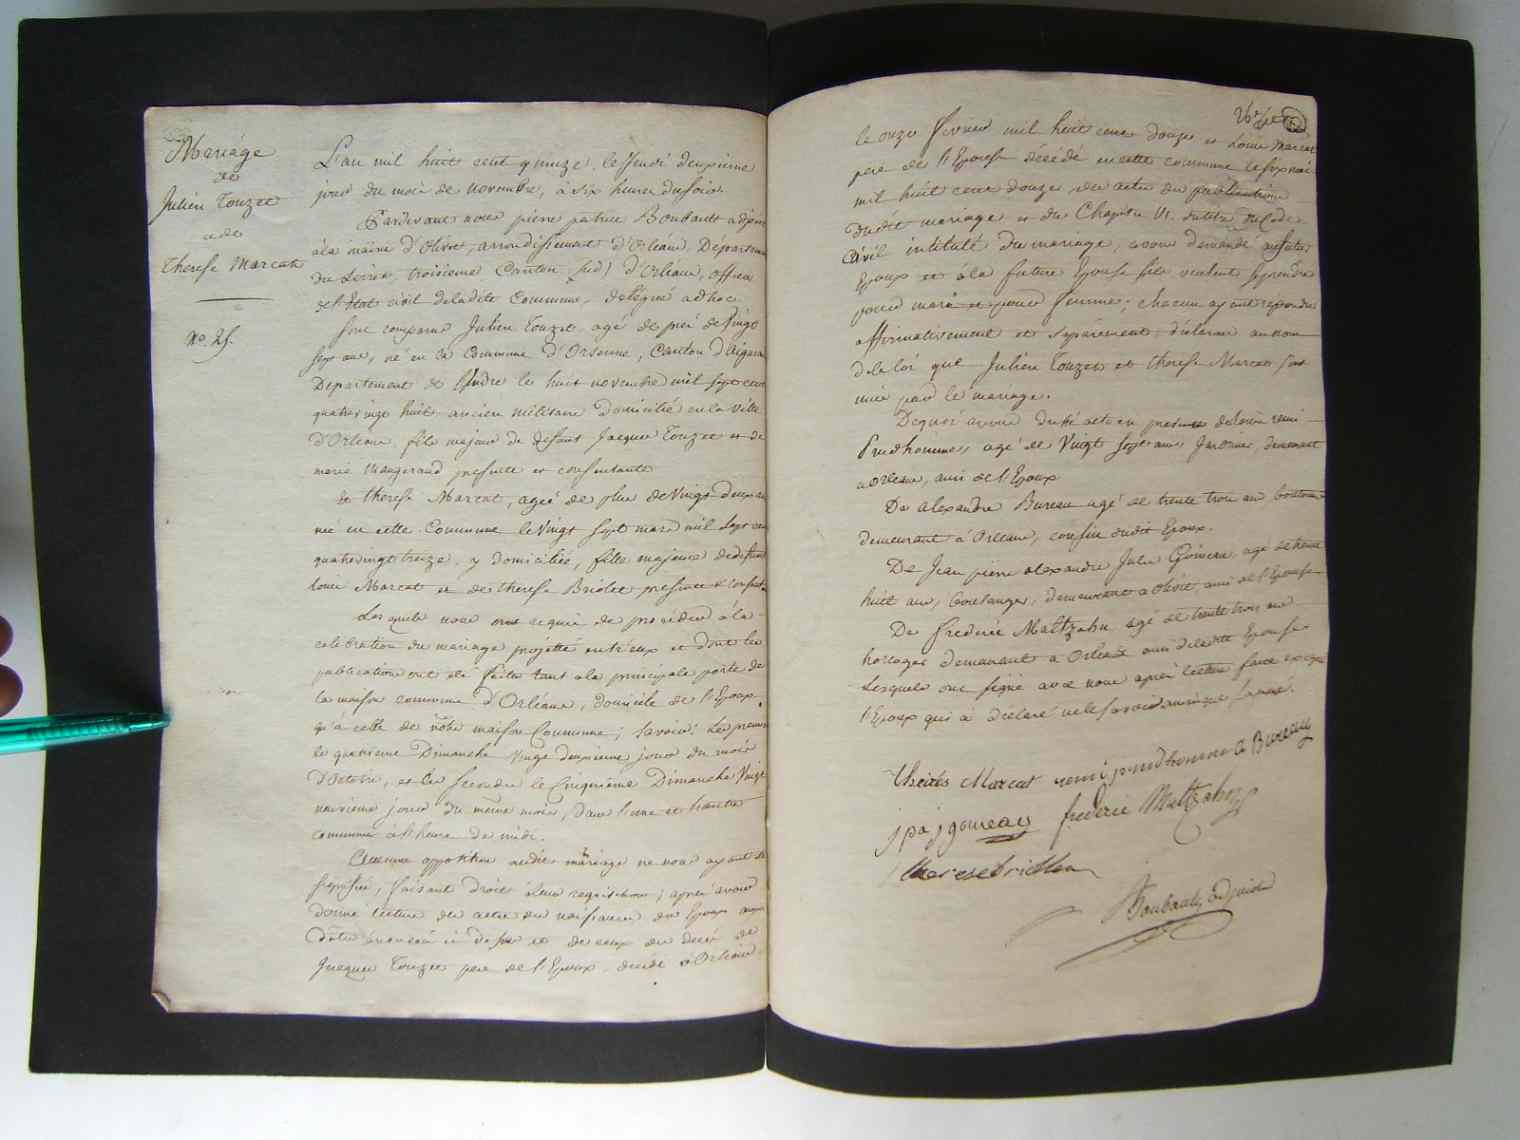 Mariage
de
Julien Touzet
et de
Therese Marcat
No. 25.
L'an mil huit cent quinze, le Jeudi deuxieme
jour du mois de novembre, à six heures du soir
Pardevant nous pierre patrice Boubault adjoint
à la mairie d'Olivet, arrondissement d'Orléans, Département
du Loiret, troisieme Canton, sud, d'Orléans, officier
de l'Etat civil de ladite Commune, delégué ad hoc
Sont comparus Julien Touzet, agé de près de Vingt
sept ans, né en la Commune d'Orsenne, Canton d'Aigurande
Departement de l'Indre le huit novembre mil sept cent
quatrevingt huit, ancien militaire domicilié en la ville
d'Orléans, fils majeur de defunt Jacques Touzet et de
marie Maugeraud presente et consentante
Et therese Marcat, agée de plus de Vingt deux ans
née en cette Commune le Vingt sept mars mil sept cent
quatrevingt treize, y domiciliée, fille majeure de defunt
louis Marcat et de therese Briolet presente & consentante
Lesquels nous ont requis de proceder à la
celebration du mariage projetté entr'eux et dont les
publications ont été faites tant à la principale porte de
la maison commune d'Orléans, domicile de l'Epoux,
qu'à celle de notre maison Commune; savoir: la premiere
le quatrieme Dimanche Vingt deuxieme jour du mois
D'Octobre, et la seconde le Cinquieme Dimanche Vingt
neuvieme jour du même mois, dans l'une et l'autre
commune à l'heure de midi.
Aucune opposition audit mariage ne nous ayant été
signifiée, faisant droit à leur requisition; après avoir
donné lecture des actes de naissances des Epoux aux
dates énoncées ci dessus et de ceux du decès de
Jacques Touzet pere de l'Epoux, decedé à Orléans
le onze fevrier mil huit cent douze et Louis Marcat
pere de l'Epouse décédé en cette commune le six mai
mil huit cent douze, des actes de publications
dudit mariage et du Chapitre VI. du titre du Code
Civil intitulé Du mariage, avons demandé au futur
Epoux et à la future Epouse s'ils veulent se prendre
pour mari et pour femme; chacun ayant repondu
affirmativement et séparement, déclarons au nom
de la loi que Julien Touzet et therese Marcat sont
unis par le mariage.
De quoi avons dressé acte en presence de louis remi
Prudhomme, agé de Vingt sept ans Jardinier, demeurant
à Orléans, ami de l'Epoux
De alexandre Bureau agé de trente trois ans
demeurant à Orléans, cousin dudit Epoux.
De Jean pierre alexandre Jules agé de trente
huit ans, boulanger, demeurant à Olivet, ami de l'Epouse
De frederic Maltzahn agé de trente trois ans
horloger demeurant à Orléans ami de ladite Epouse
Lesquels ont signé avec nous après lecture faite excepté
l'Epoux qui a déclaré ne le savoir
therese Marcat remi prudhomme A Bureau
j p a j goueau frederic Maltzahn
therese briollet
Boubault, adjoint